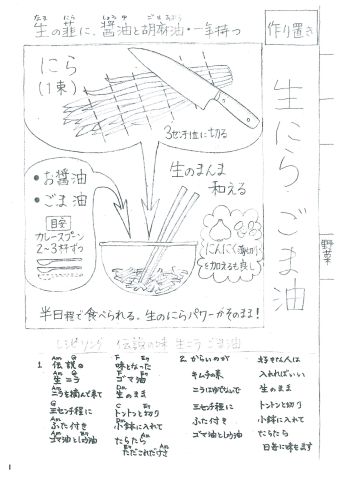 生の韮に、醤油と胡麻油・一年持つ
作り置き
生にらごま油
野菜
にら
(1束)
3センチ位に切る
・お醤油
・ごま油
目安
カレースプーン
2〜3杯ずつ
生のまんま
和える
にんにく薄切り
を加えるも良し
半日程で食べられる。生のにらパワーがそのまま!
レシピソング 伝説の味 生ニラごま油
1. Am G
伝説の
Am G
生ニラ
Am
ニラを摘んで来て
G
三センチ程に
Am
ふた付き
Am
ゴマ油としょう油
F Em
味となった
F Em
ゴマ油
Dm
生のまま
C Em
トントンと切り
Dm
小鉢に入れて
たらたら
ただこれだけさ
2. からいのが
キムチの素
ニラはゆでないで
三センチ程に
ふた付き
ゴマ油としょう油
好きな人は
入れればいい
生のまま
トントンと切り
小鉢に入れて
たらたら
1